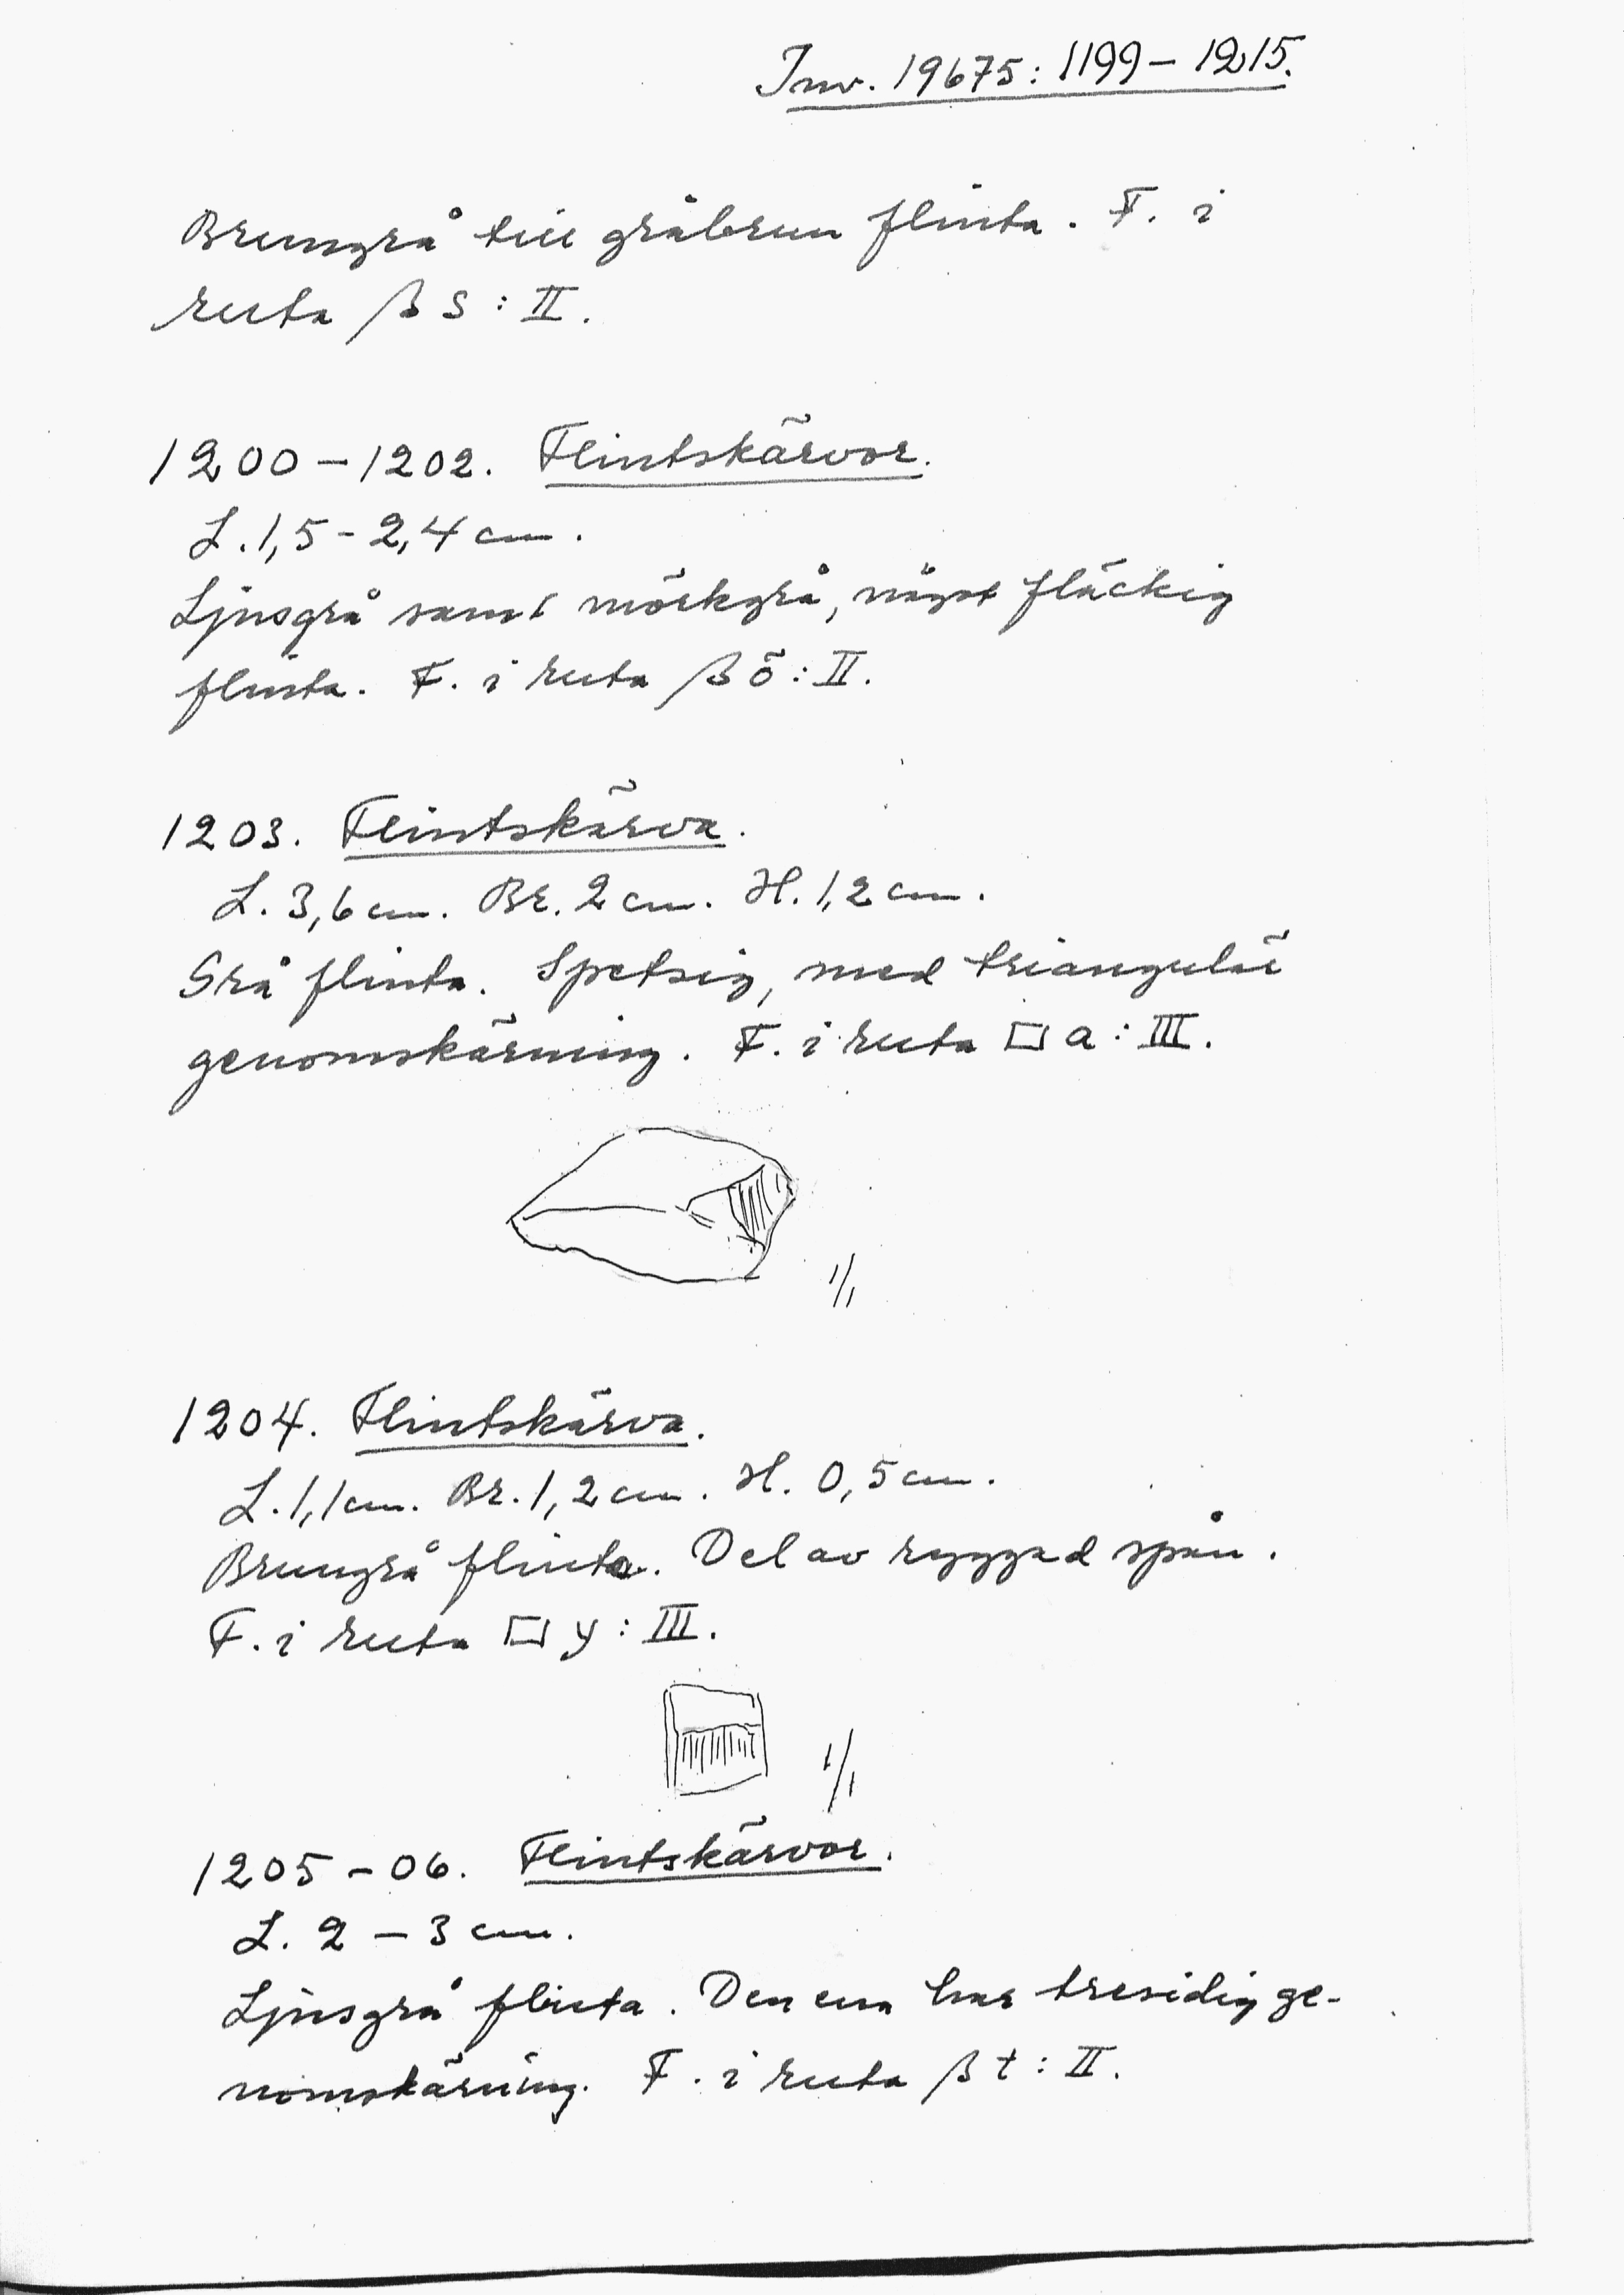 Inv. 19675: 1199 – 1215.
Brungrå till gråbrun flinta. F. i
ruta β s : II.
1200 – 1202. Flintskärvor.
L. 1,5 - 2,4 cm.
Ljusgrå samt mörkgrå, något fläckig
flinta. F. i ruta β ö : II.
1203. Flintskärva.
L. 3,6 cm. Br. 2 cm. H. 1,2 cm.
Grå flinta. Spetsig, med triangulär
genomskärning. F. i ruta □ a : III.
1/1
1204. Flintskärva.
L. 1,1 cm. Br. 1,2 cm. H. 0,5 cm.
Brungrå flinta. Del av ryggad spån.
F. i ruta □ y : III.
1/1
1205 – 06. Flintskärvor.
L. 2 – 3 cm.
Ljusgrå flinta. Den ena har tresidig ge-
nomskärning. F. i ruta β t : II.